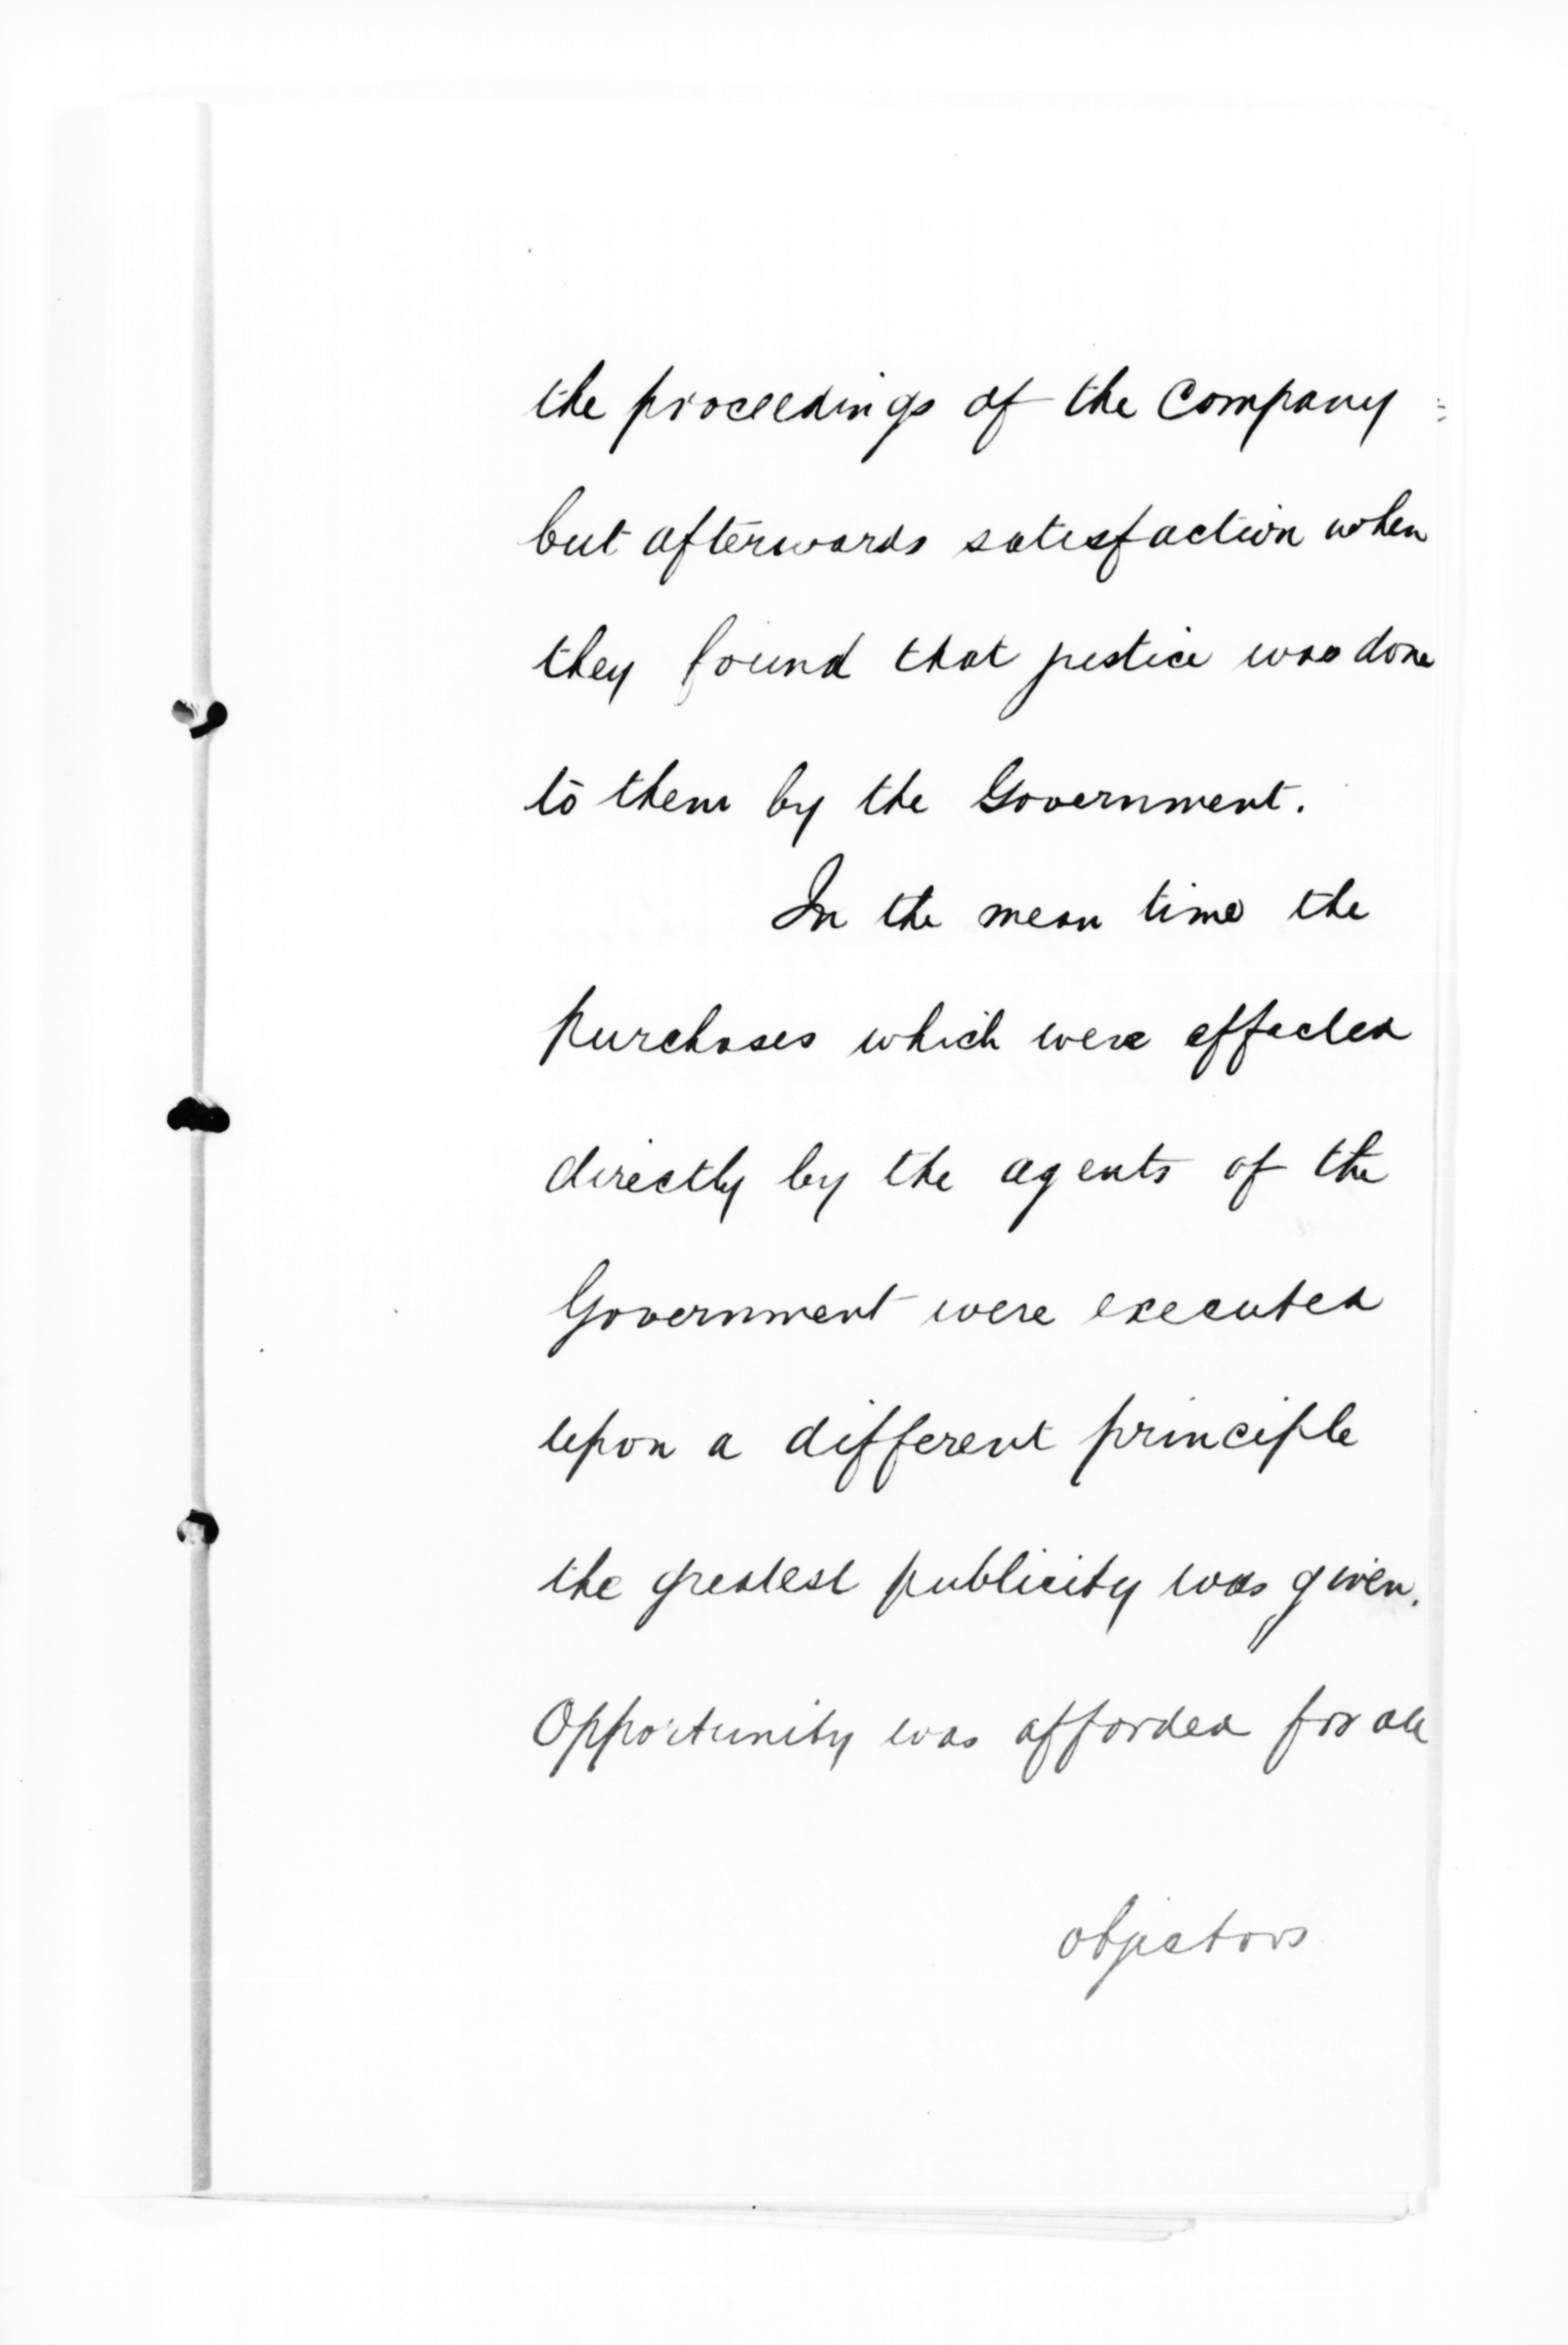 the proceedings of the Company
but afterwards satisfaction when
they found that justice was done
to them by the Government.
In the mean time the
purchases which were effected
directly by the agents of the
Government were executed
upon a different principle
the greatest publicity was given.
Opportunity was afforded for all
objectors